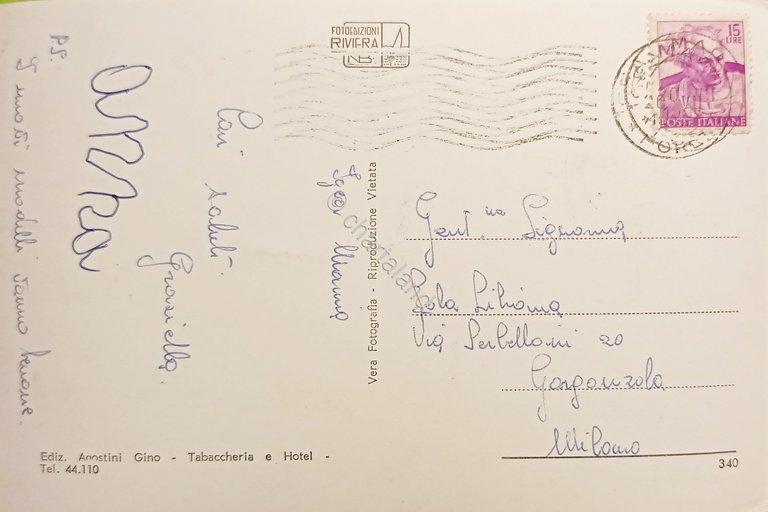 FOTOEDIZIONI
RIVIERA
15
LIRE
POSTE ITALIANE
Cari saluti.
Graziella.
Anna
P.S.
I nuoti modelli vanno benone.
Mamma
Vera Fotografia - Riproduzione Vietata
© chartaland
Gent.ma Signorina
Liliana
Via Serbelloni 20
Gorgonzola
Milano
Ediz. Agostini Gino - Tabaccheria e Hotel -
Tel. 44.110
340